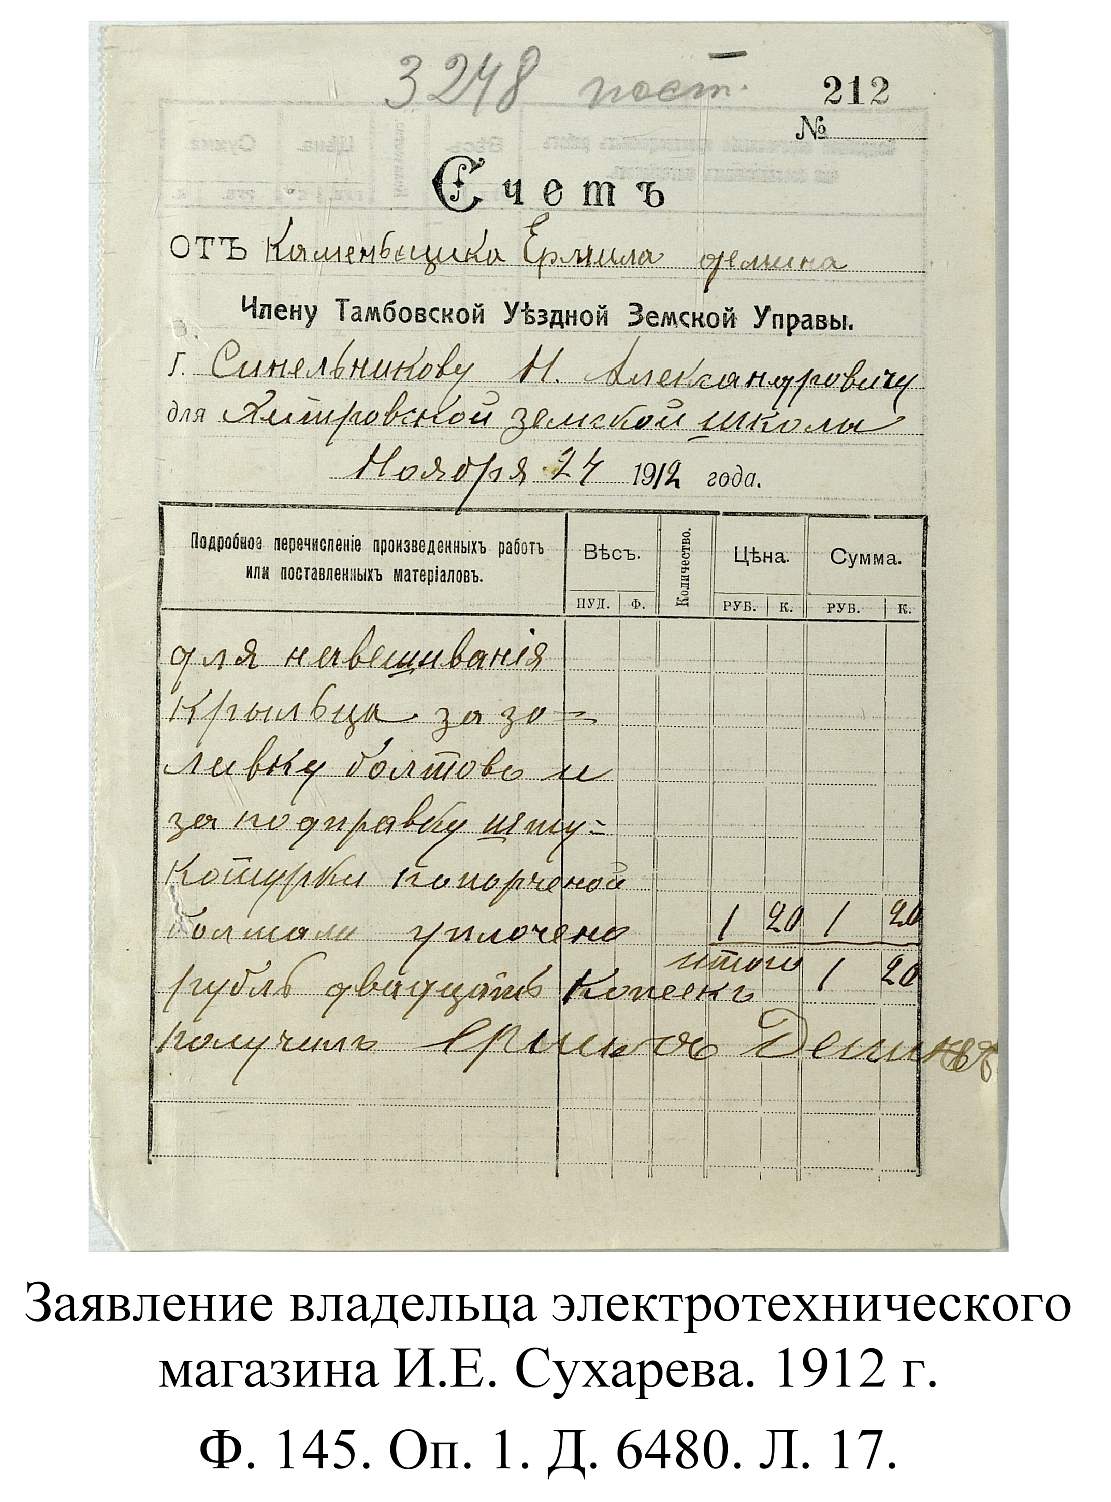 3248 пост.
212
№
Счетъ
отъ Каменьщика Ермила Демина
Члену Тамбовской Уѣздной Земской Управы.
г. Синельникову Н. Александровичу
для Хитровской земской школы
Ноября 24 1912 года.
Подробное перечисленіе произведенныхъ работъ или поставленныхъ матеріаловъ.
Вѣсъ.
Количество.
Цѣна.
Сумма.
ПУД. Ф. РУБ. К. РУБ. К.
для навешиванія
крыльца за за=
ливку болтовъ и
за подправку шту=
катурки попорченой
болтами уплочено 1 20 1 20
итого 1 20
рубль двадцать копеекъ
получилъ Ермилъ Деминъ
Заявление владельца электротехнического
магазина И.Е. Сухарева. 1912 г.
Ф. 145. Оп. 1. Д. 6480. Л. 17.